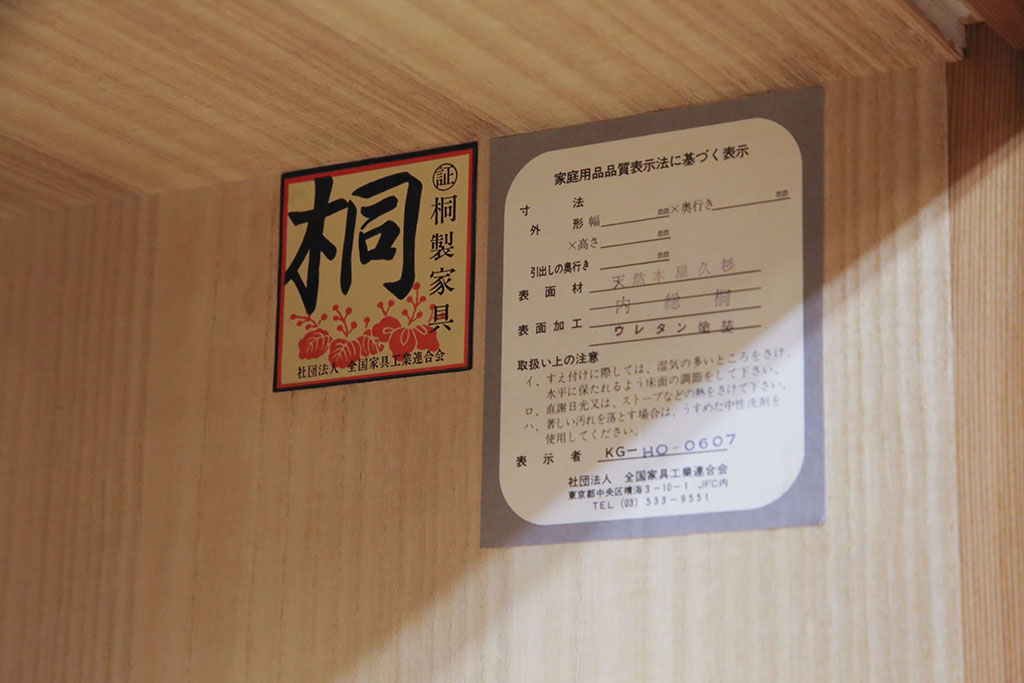 桐
証
桐製家具
社団法人 全国家具工業連合会
家庭用品品質表示法に基づく表示
寸法
外形 幅 mm×奥行き mm
×高さ mm
引出しの奥行き mm
表面材 天然木屋久杉
内 総桐
表面加工 ウレタン塗装
取扱い上の注意
イ、すえ付けに際しては、湿気の多いところをさけ、
水平に保たれるよう床面の調節をして下さい。
ロ、直謝日光又は、ストーブなどの熱をさけて下さい。
ハ、著しい汚れを落とす場合は、うすめた中性洗剤を
使用してください。
表示者 KG-HO-0607
社団法人 全国家具工業連合会
東京都中央区晴海3-10-1 JFC内
TEL (03) 533-9551